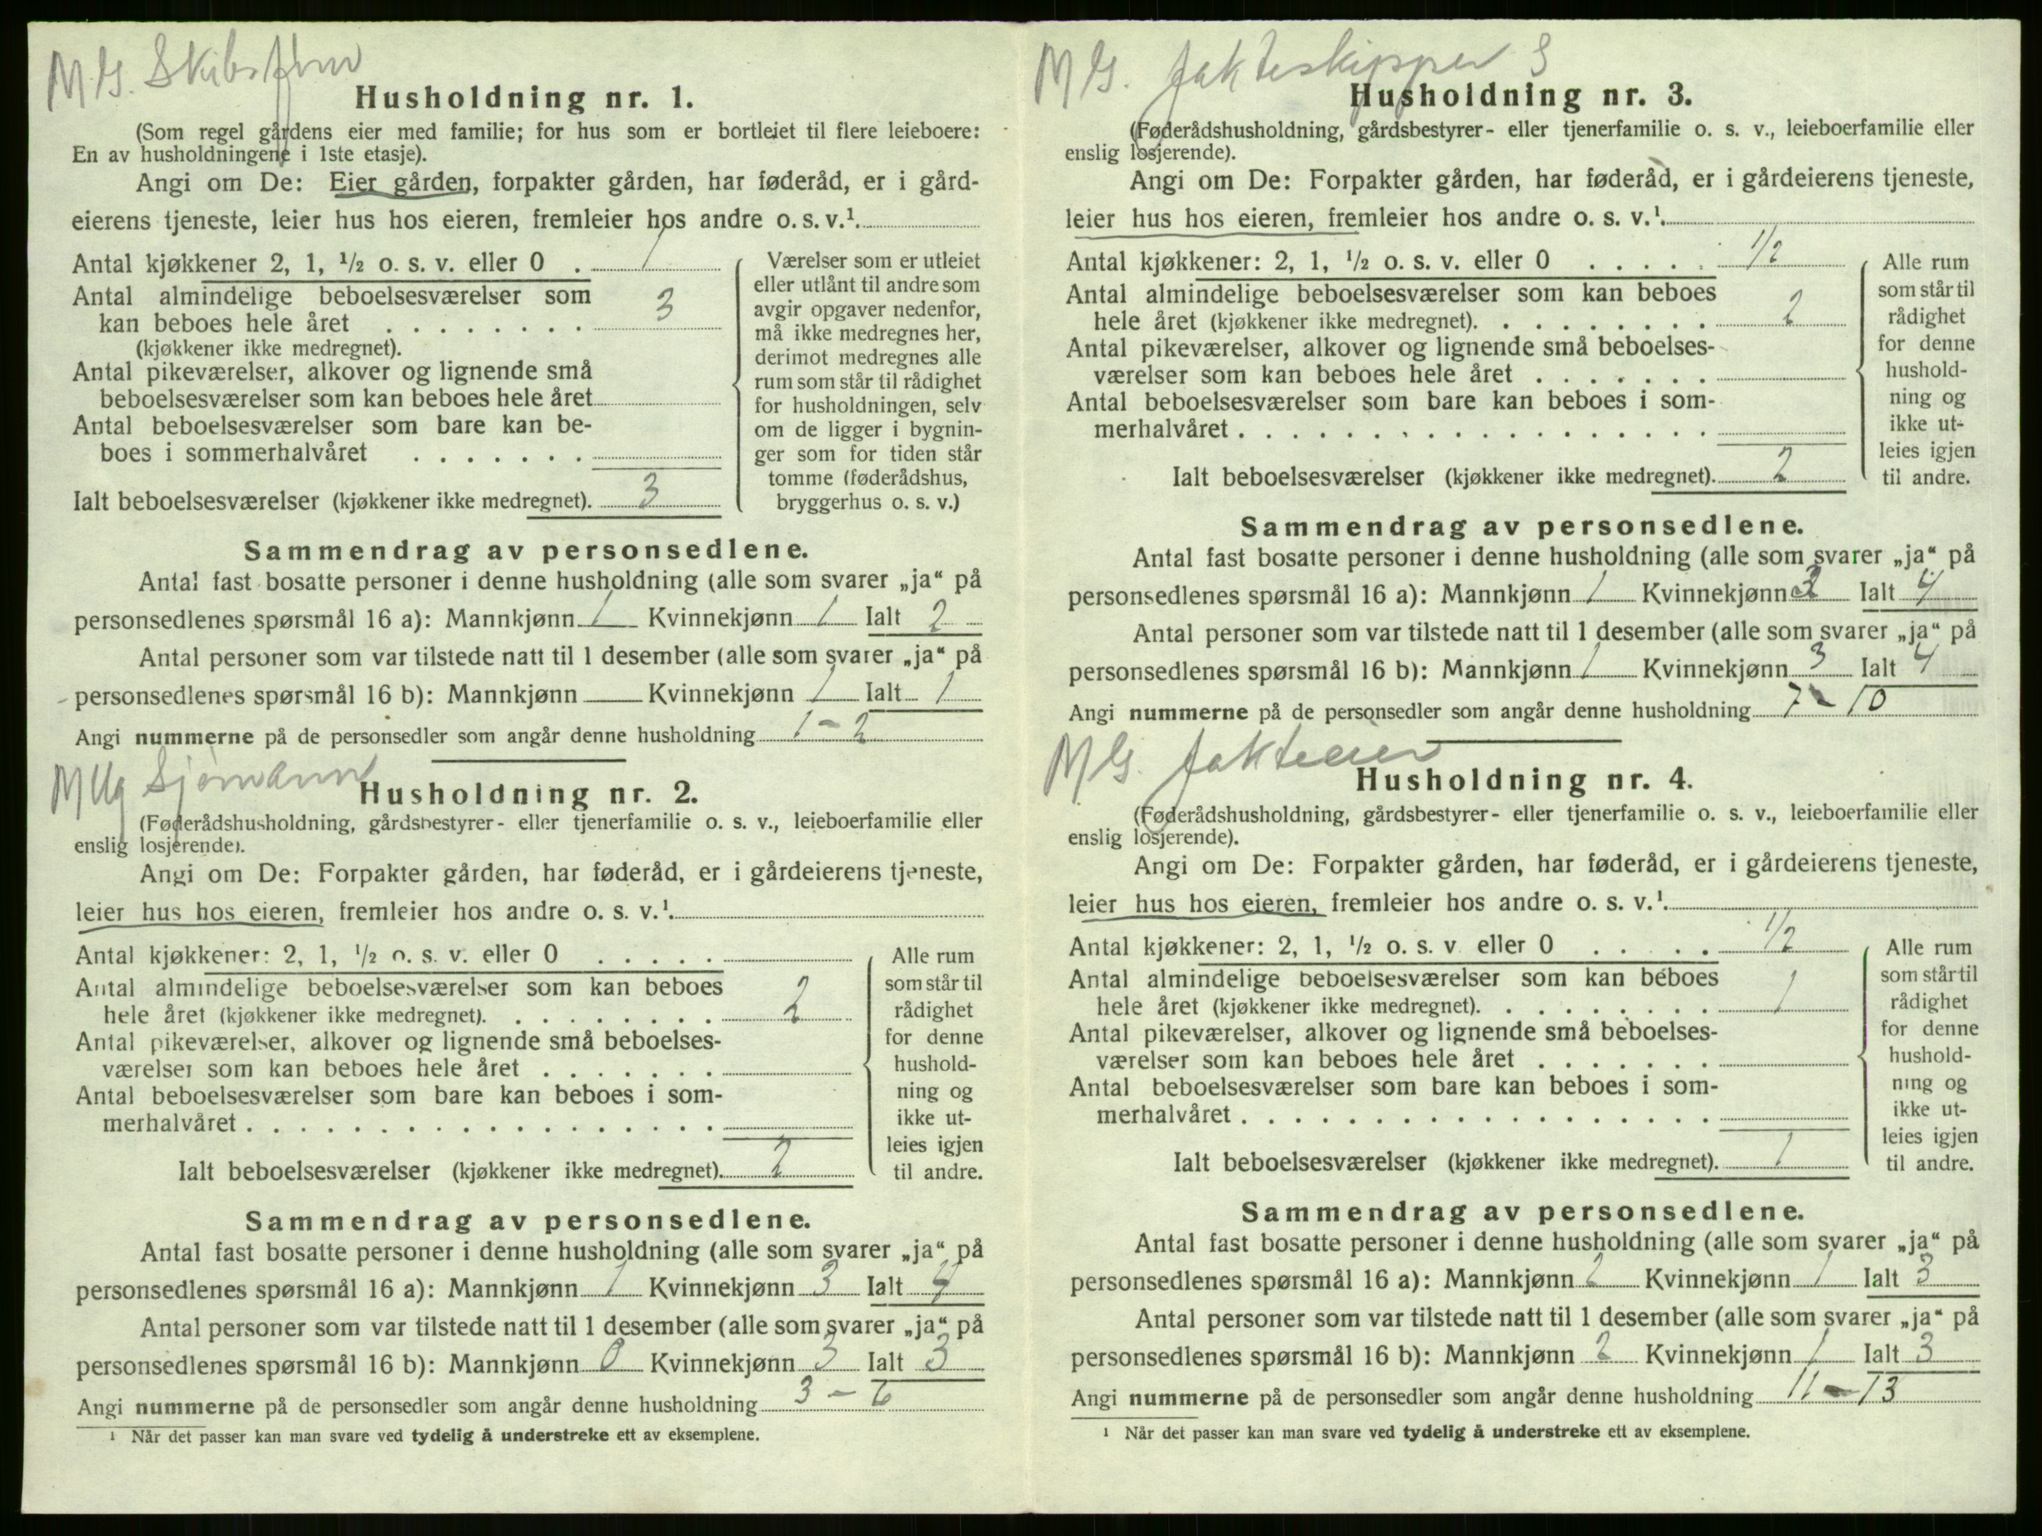 M.G. Skibsfører
Husholdning nr. 1.
(Som regel gårdens eier med familie; for hus som er bortleiet til flere leieboere:
En av husholdningene i 1ste etasje).
Angi om De: Eier gården, forpakter gården, har føderåd, er i gård-
eierens tjeneste, leier hus hos eieren, fremleier hos andre o. s. v.¹.
Antal kjøkkener 2, 1, ½ o. s. v. eller 0 . 1
Antal almindelige beboelsesværelser som
kan beboes hele året . . . . . . . . 3
(kjøkkener ikke medregnet).
Antal pikeværelser, alkover og lignende små
beboelsesværelser som kan beboes hele året
Antal beboelsesværelser som bare kan be-
boes i sommerhalvåret . . . . . . .
Ialt beboelsesværelser (kjøkkener ikke medregnet). 3
Værelser som er utleiet
eller utlånt til andre som
avgir opgaver nedenfor,
må ikke medregnes her,
derimot medregnes alle
rum som står til rådighet
for husholdningen, selv
om de ligger i bygnin-
ger som for tiden står
tomme (føderådshus,
bryggerhus o. s. v.)
Sammendrag av personsedlene.
Antal fast bosatte personer i denne husholdning (alle som svarer „ja“ på
personsedlenes spørsmål 16 a): Mannkjønn 1 Kvinnekjønn 1 Ialt 2
Antal personer som var tilstede natt til 1 desember (alle som svarer „ja“ på
personsedlenes spørsmål 16 b): Mannkjønn Kvinnekjønn 1 Ialt 1
Angi nummerne på de personsedler som angår denne husholdning 1 – 2
Sjømann
Husholdning nr. 2.
(Føderådshusholdning, gårdsbestyrer- eller tjenerfamilie o. s. v., leieboerfamilie eller
enslig losjerende).
Angi om De: Forpakter gården, har føderåd, er i gårdeierens tjeneste,
leier hus hos eieren, fremleier hos andre o. s. v.¹.
Antal kjøkkener: 2, 1, ½ o. s. v. eller 0 . . . . .
Antal almindelige beboelsesværelser som kan beboes
hele året (kjøkkener ikke medregnet). . . . . . . . . 2
Antal pikeværelser, alkover og lignende små beboelses-
værelser som kan beboes hele året . . . . . . .
Antal beboelsesværelser som bare kan beboes i som-
merhalvåret . . . . . . . . . . . . . . . . . .
Ialt beboelsesværelser (kjøkkener ikke medregnet). 2
Alle rum
som står til
rådighet
for denne
hushold-
ning og
ikke ut-
leies igjen
til andre.
Sammendrag av personsedlene.
Antal fast bosatte personer i denne husholdning (alle som svarer „ja“ på
personsedlenes spørsmål 16 a): Mannkjønn 1 Kvinnekjønn 3 Ialt 4
Antal personer som var tilstede natt til 1 desember (alle som svarer „ja“ på
personsedlenes spørsmål 16 b): Mannkjønn 0 Kvinnekjønn 3 Ialt 3
Angi nummerne på de personsedler som angår denne husholdning 3 – 6
¹ Når det passer kan man svare ved tydelig å understreke ett av eksemplene.
M.G. Jakteskipper S
Husholdning nr. 3.
(Føderådshusholdning, gårdsbestyrer- eller tjenerfamilie o. s. v., leieboerfamilie eller
enslig losjerende).
Angi om De: Forpakter gården, har føderåd, er i gårdeierens tjeneste,
leier hus hos eieren, fremleier hos andre o. s. v.¹.
Antal kjøkkener: 2, 1, ½ o. s. v. eller 0 . . . . . 1/2
Antal almindelige beboelsesværelser som kan beboes
hele året (kjøkkener ikke medregnet). . . . . . . . . 2
Antal pikeværelser, alkover og lignende små beboelses-
værelser som kan beboes hele året . . . . . . .
Antal beboelsesværelser som bare kan beboes i som-
merhalvåret . . . . . . . . . . . . . . . . . .
Ialt beboelsesværelser (kjøkkener ikke medregnet). 2
Alle rum
som står til
rådighet
for denne
hushold-
ning og
ikke ut-
leies igjen
til andre.
Sammendrag av personsedlene.
Antal fast bosatte personer i denne husholdning (alle som svarer „ja“ på
personsedlenes spørsmål 16 a): Mannkjønn 1 Kvinnekjønn 3 Ialt 4
Antal personer som var tilstede natt til 1 desember (alle som svarer „ja“ på
personsedlenes spørsmål 16 b): Mannkjønn 1 Kvinnekjønn 3 Ialt 4
Angi nummerne på de personsedler som angår denne husholdning 7 – 10
M.G. Jakteeier
Husholdning nr. 4.
(Føderådshusholdning, gårdsbestyrer- eller tjenerfamilie o. s. v., leieboerfamilie eller
enslig losjerende).
Angi om De: Forpakter gården, har føderåd, er i gårdeierens tjeneste,
leier hus hos eieren, fremleier hos andre o. s. v.¹.
Antal kjøkkener: 2, 1, ½ o. s. v eller 0 . . . . . 1/2
Antal almindelige beboelsesværelser som kan beboes
hele året (kjøkkener ikke medregnet). . . . . . . . . 1
Antal pikeværelser, alkover og lignende små beboelses-
værelser som kan beboes hele året . . . . . . .
Antal beboelsesværelser som bare kan beboes i som-
merhalvåret . . . . . . . . . . . . . . . . . .
Ialt beboelsesværelser (kjøkkener ikke medregnet). 1
Alle rum
som står til
rådighet
for denne
hushold-
ning og
ikke ut-
leies igjen
til andre.
Sammendrag av personsedlene.
Antal fast bosatte personer i denne husholdning (alle som svarer „ja“ på
personsedlenes spørsmål 16 a): Mannkjønn 2 Kvinnekjønn 1 Ialt 3
Antal personer som var tilstede natt til 1 desember (alle som svarer „ja“ på
personsedlenes spørsmål 16 b): Mannkjønn 2 Kvinnekjønn 1 Ialt 3
Angi nummerne på de personsedler som angår denne husholdning 11 – 13
¹ Når det passer kan man svare ved tydelig å understreke ett av eksemplene.